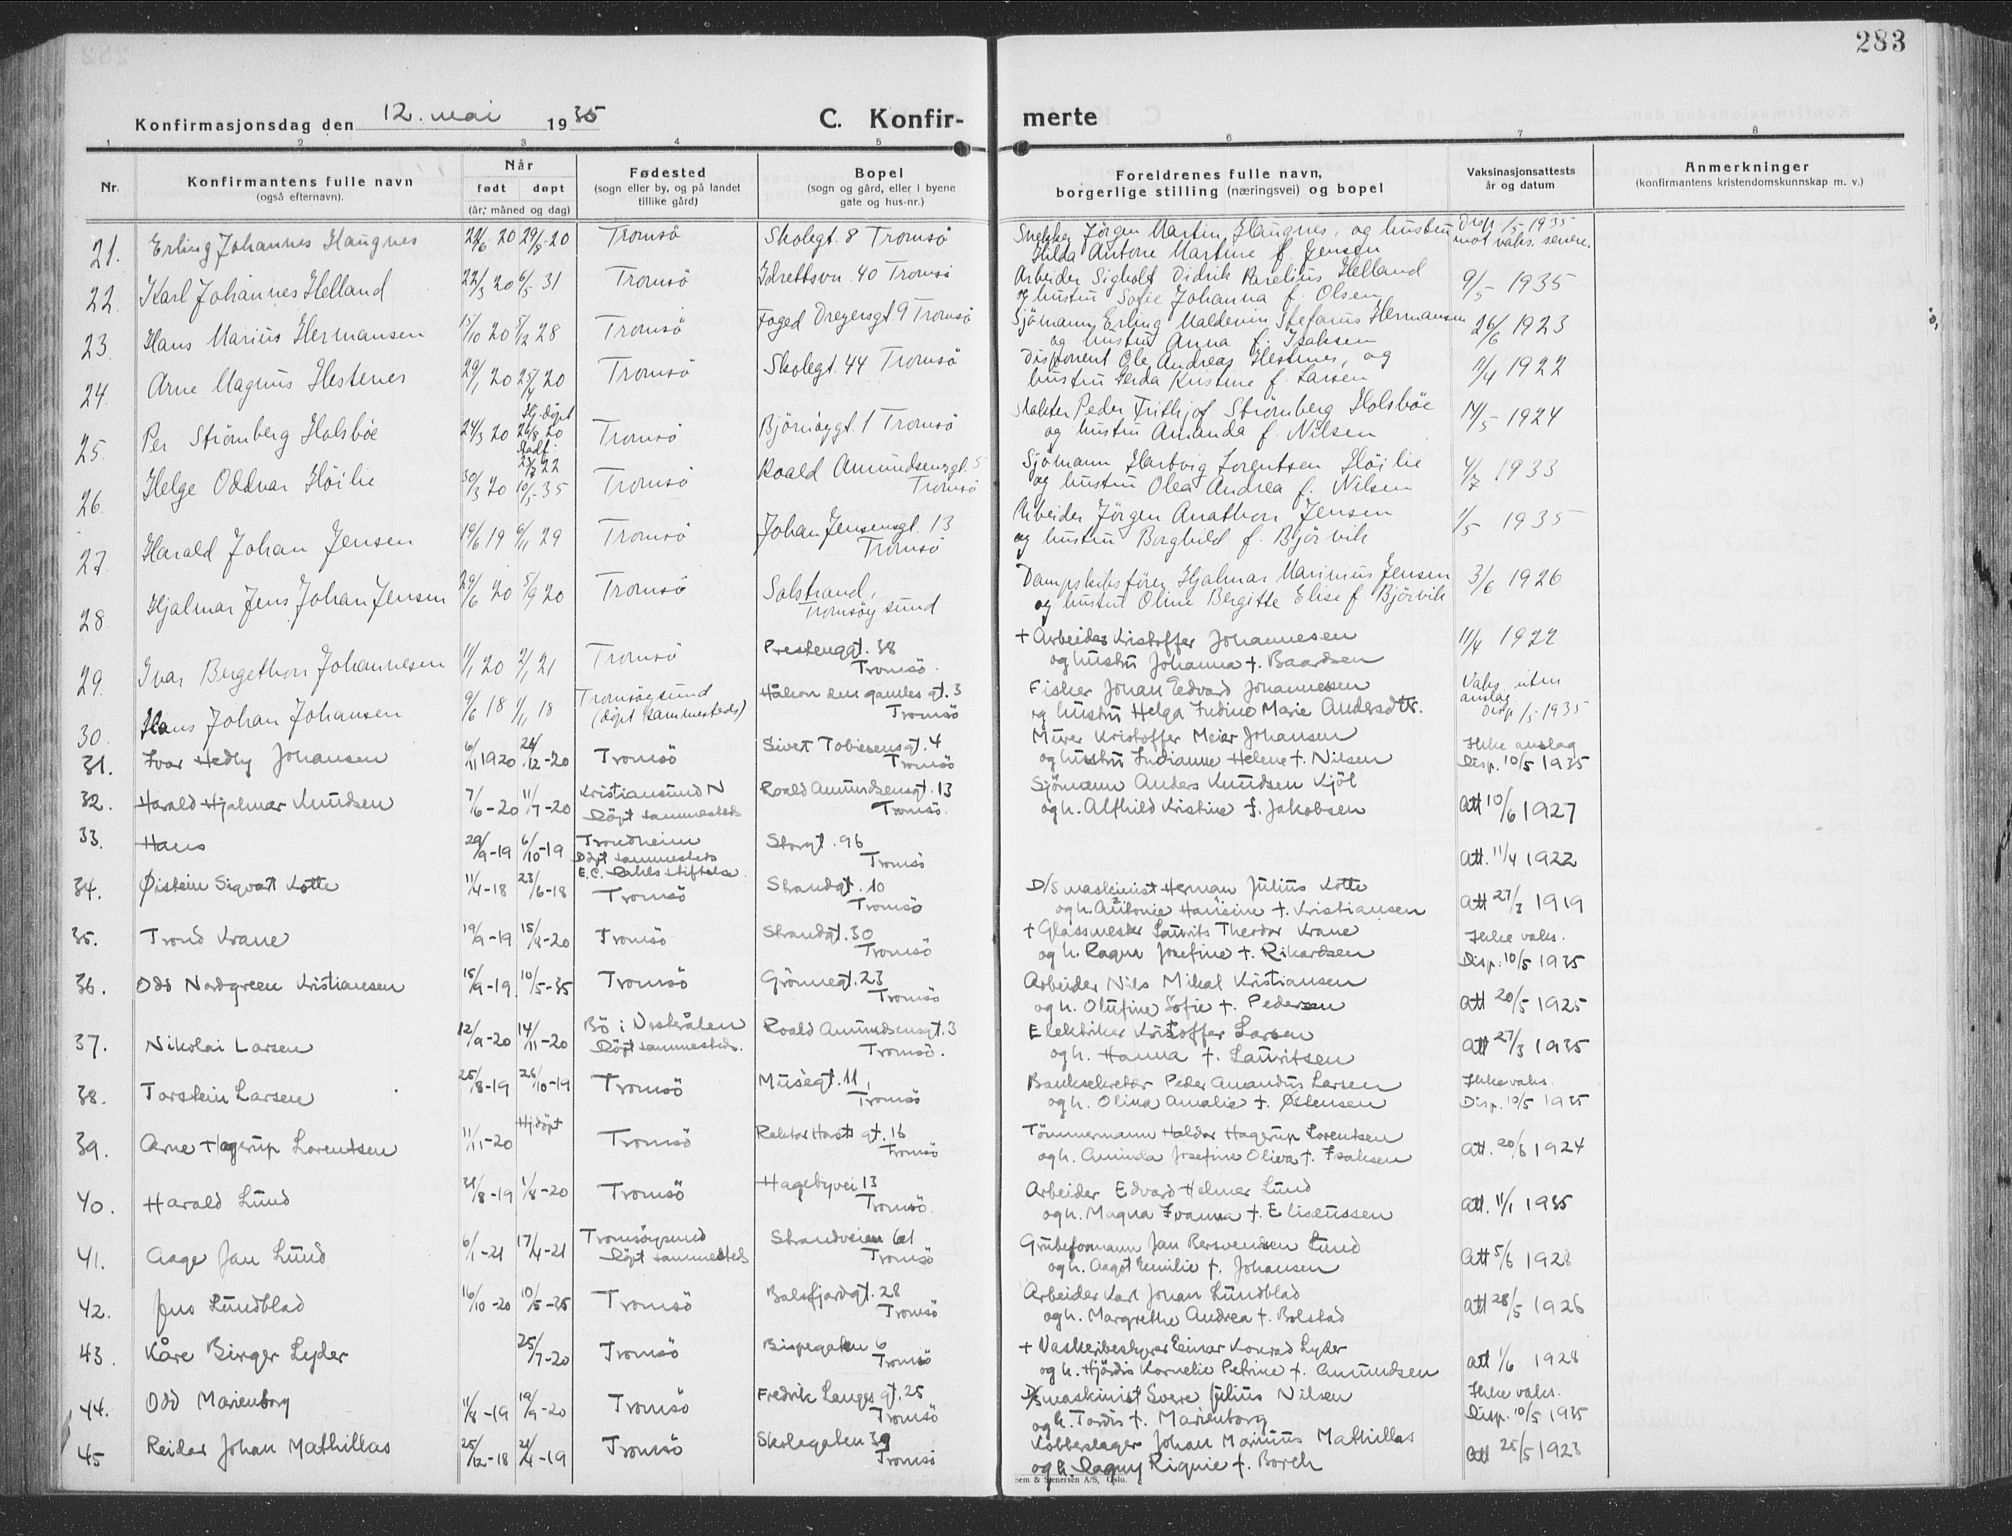 283
Konfirmasjonsdag den 12. mai 1935 C. Konfir- merte
1 2 3 4 5 6 7 8
Nr. Konfirmantens fulle navn (også efternavn). Når født døpt (år, måned og dag) Fødested (sogn eller by, og på landet tillike gård) Bopel (sogn og gård, eller i byene gate og hus-nr.) Foreldrenes fulle navn, borgerlige stilling (næringsvei) og bopel Vaksinasjonsattests år og datum Anmerkninger (konfirmantens kristendomskunnskap m. v.)
21. Erling Johannes Haugnes 20 29/8-20 Tromsö Skolegt. 8 Tromsö Snekker Jörgen Martin Haugnes, og hustru Disp. 1/5-1935
Hilda Antone Martine f. Jensen mot vaks. senere.
22. Karl Johannes Helland 22/3 20 6/5 31 Tromsö Idrettsvn. 40 Tromsö Arbeider Sigholt Didrik Helland 9/5-1935
og hustru Sofie Johanna f. Olsen
23. Hans Marius Hermansen 15/10 20 5/2 28 Tromsö Foged Dreyersgt. 9 Tromsö Sjömann Erling Maldevin Stefanus Hermansen 26/6 1923
og hustru Anna f. Isaksen
24. Arne Magnus Hestenes 29/1 20 25/4 20 Tromsö Skolegt. 44 Tromsö Disponent Ole Andreas Hestenes, og 11/4 1922
hustru Gerda Kristine f. Larsen
25. Per Strömberg Holsböe 24/3 20 Hj.döpt 20 Stadf. 22 Tromsö Björnöygt. 1 Tromsö Slakter Peder Frithjof Strömberg Holsböe 14/5-1924
og hustru Amanda f. Nilsen
26. Helge Oddvar Höilie 30/3 20 10/5-35 Tromsö Roald Amundsensgt. 5 Tromsö Sjömann Hartvig Lorentsen Höilie 4/7 1933
og hustru Olea Andrea f. Nilsen
27. Harald Johan Jensen 19/6 19 6/1 29 Tromsö Johan Jensensgt. 13 Tromsö Arbeider Jörgen Anathon Jensen 1/5 1935
og hustru Borghild f. Björvik
28. Hjalmar Jens Johan Jensen 29/6 20 5/9 20 Tromsö Solstrand, Tromsöysund Dampskibsförer Hjalmar Marinius Jensen 3/6 1926
og hustru Oline Bergitte Elise f. Björvik
29. Ivar Bergethon Johannesen 11/1 20 2/1 21 Tromsö Prestenggt. 38 Tromsö. + Arbeider Kristoffer Johannesen 11/4 1922
og hustru Johanna f. Baardsen
30. Hans Johan Johansen 9/6 18 1/11 18 Tromsöysund (döpt sammesteds) Håkon den gamles gt. 3 Tromsö Fisker Johan Edvard Johannesen Vaks uten anslag
og hustru Helga Indine Marie Andersdtr. Disp 1/5-1935
31. Ivar Hedly Johansen 6/11 1920 26/12-20 Tromsö Sivert Tobiesensgt. 4 Tromsö Murer Kristoffer Meier Johansen Ikke anslag
og hustru Indianne Helene f. Nilsen Disp. 10/5 1935
32. Harald Hjalmar Knudsen 7/6-20 11/7-20 Kristiansund N Döpt sammesteds Roald Amundsensgt. 13 Tromsö. Sjömann Anders Knudsen Kjöl
og h. Alfhild Kristine f. Jakobsen Att 10/6 1927
33. Hans 29/9-19 6/10-19 Trondheim Döpt sammesteds E.C. Dahls stiftelse. Storgt. 96 Tromsö att. 11/4 1922
34. Øistein Sigvart Kotte 11/4-18 23/6-18 Tromsö Strandgt. 10 Tromsö D/S maskinist Herman Julius Kotte
og h. Antonie Hansine f. Kristiansen att 27/3 1919
35. Trond Krane 19/9-19 15/8-20 Tromsö Strandgt. 30 Tromsö + Glassmester Laurits Theodor Krane Ikke vaks.
og h. Ragna Josefine f. Rikardsen Disp. 10/5 1935
36. Odd Nordgreen Kristiansen 15/9-19. 10/5-35 Tromsö Grönnegt. 23 Tromsö Arbeider Nils Mikal Kristiansen
og h. Olufine Sofie f. Pedersen att 20/5 1925
37. Nikolai Larsen 12/9-20 14/11-20 Bö i Vesterålen Döpt sammesteds. Roald Amundsensgt. 3 Tromsö. Elektriker Kristoffer Larsen
og h. Hanna f. Lauritsen att 27/3 1935
38. Torstein Larsen 25/8-19 26/10-19 Tromsö Musègt. 11, Tromsö Banksekretær Peder Amandus Larsen Ikke vaks.
og h. Olina Amalie f. Östensen Disp. 10/5 1935
39. Arne Hagerup Lorentsen 11/11-20 Hj.döpt Tromsö Rektor Horsts gt. 16 Tromsö Tömmermann Haldor Hagerup Lorentsen
og h. Aminda Josefine Oliva f. Isaksen att. 20/6 1924
40. Harald Lund 31/8-19 1/8-20 Tromsö Hagebyvei 13 Tromsö. Arbeider Edvard Helmer Lund
og h. Magna Ivanna f. Eliseussen att. 11/1 1935
41. Aage Jan Lund 6/1-21 17/4-21 Tromsöysund Döpt sammesteds Strandveien 61 Tromsö Grubeformann Jan Bersvendsen Lund
og h. Aagot Emilie f. Johansen att 5/6 1928
42. Jens Lundblad 16/10-20 10/5-35 Tromsö Balsfjordgt. 28 Tromsö Arbeider Karl Johan Lundblad
og h. Margrethe Andrea f. Bolstad att 28/5 1926
43. Kåre Birger Lyder 25/7-20 Tromsö Bispegaten 6 Tromsö + Vaskeribestyrer Einar Konrad Lyder
og h. Hjördis Kornelie Petrine f. Amundsen att 1/6 1928
44. Odd Marienborg 11/8-19 19/9-20 Tromsö Fredrik Langes gt. 25 Tromsö D/S maskinist Sverre Julius Nilsen Ikke vaks.
og h. Tordis f. Marienborg Disp. 10/5 1935
45 Reidar Johan Mathillas 25/12-18 21/4-19 Tromsö Skolegaten 39 Tromsö Kobberslager Johan Marinus Mathillas
og h. Dagny Rignie f. Borch att 25/5 1923
Sem & Stenersen A/S, Oslo.